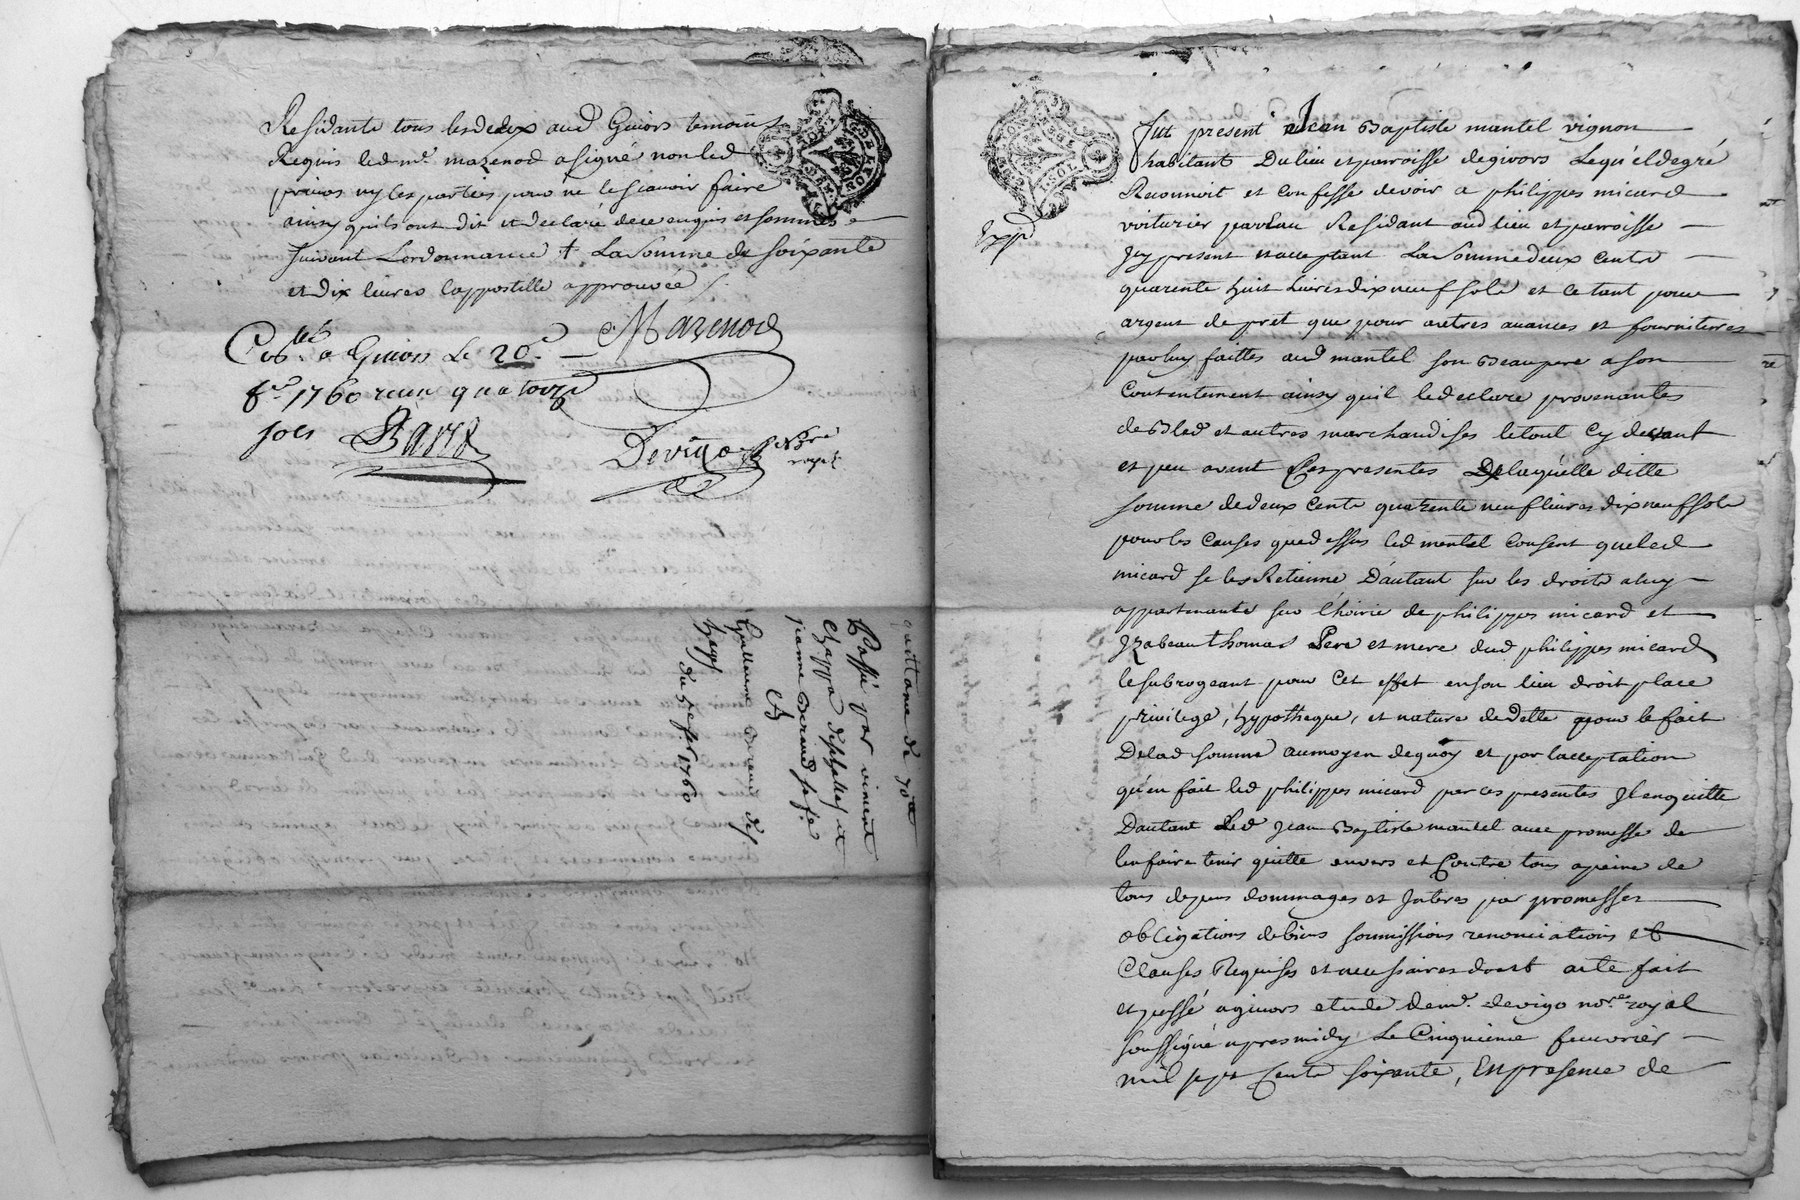 Residants tous lesdeux aud Givors temoins
Requis led mr. mazenod a signé non led
ny les parties pour ne le scavoir faire
ainsy quils ont dit et declaré de ce enquis et sommés
suivant Lordonnance + La Somme de soixante
et dix livres lappostille approuvée /.
Mazenod
a Givors Le 20e.
fer. 1760 receu quatorze
sols
Devigo Nore
royal
quittance de 70lt
Passé par vincent
Chappa
jeanne Beraud sa fe.
A
Guillaume Beraud des
hayes
du 5e. fer. 1760
Expd
Fut present Jean Baptiste mantel vignon
habitant Du lieu et parroisse de givors Lequel de gré
Reconnoit et Confesse devoir a philippes micard
voiturier par Eau Residant aud lieu et parroisse
Icy present et acceptant La Somme deux Cents
quarente huit Livres dix neuf sols et ce tant pour
argent de pret que pour autres avances et fournitures
par luy faittes aud mantel son Beaupere a son
Contentement ainsy quil le declare provenantes
de Bled et autres marchandises le tout Cy devant
et peu avant Ces presentes De laquelle ditte
somme de deux Cents quarente neuf livres dix neuf sols
pour les Causes que dessus led mantel Consent que led
micard se les Retienne D'autant sur les droits a luy
appartenants sur l'hoirie de philippes micard et
Izabeau thomas Pere et mere dud philippes micard
le subrogeant pour Cet effet en son lieu droit place
privilege, hypotheque, et nature de dette pour le fait
De lad somme au moyen de quoy et par l'acceptation
qu'en fait led philippes micard par ces presentes Il en quitte
Dautant Led Jean Baptiste mantel avec promesse de
l'en faire tenir quitte envers et Contre tous a peine de
tous depens dommages et Interes par promesses
obligations de biens soumissions renonciations et
Clauses Requises et necessaires dont acte fait
et passé a givors etude de me. devigo nore. royal
soussigné apres midy Le Cinquieme feuvrier
mil sept Cents soixante, En presence de